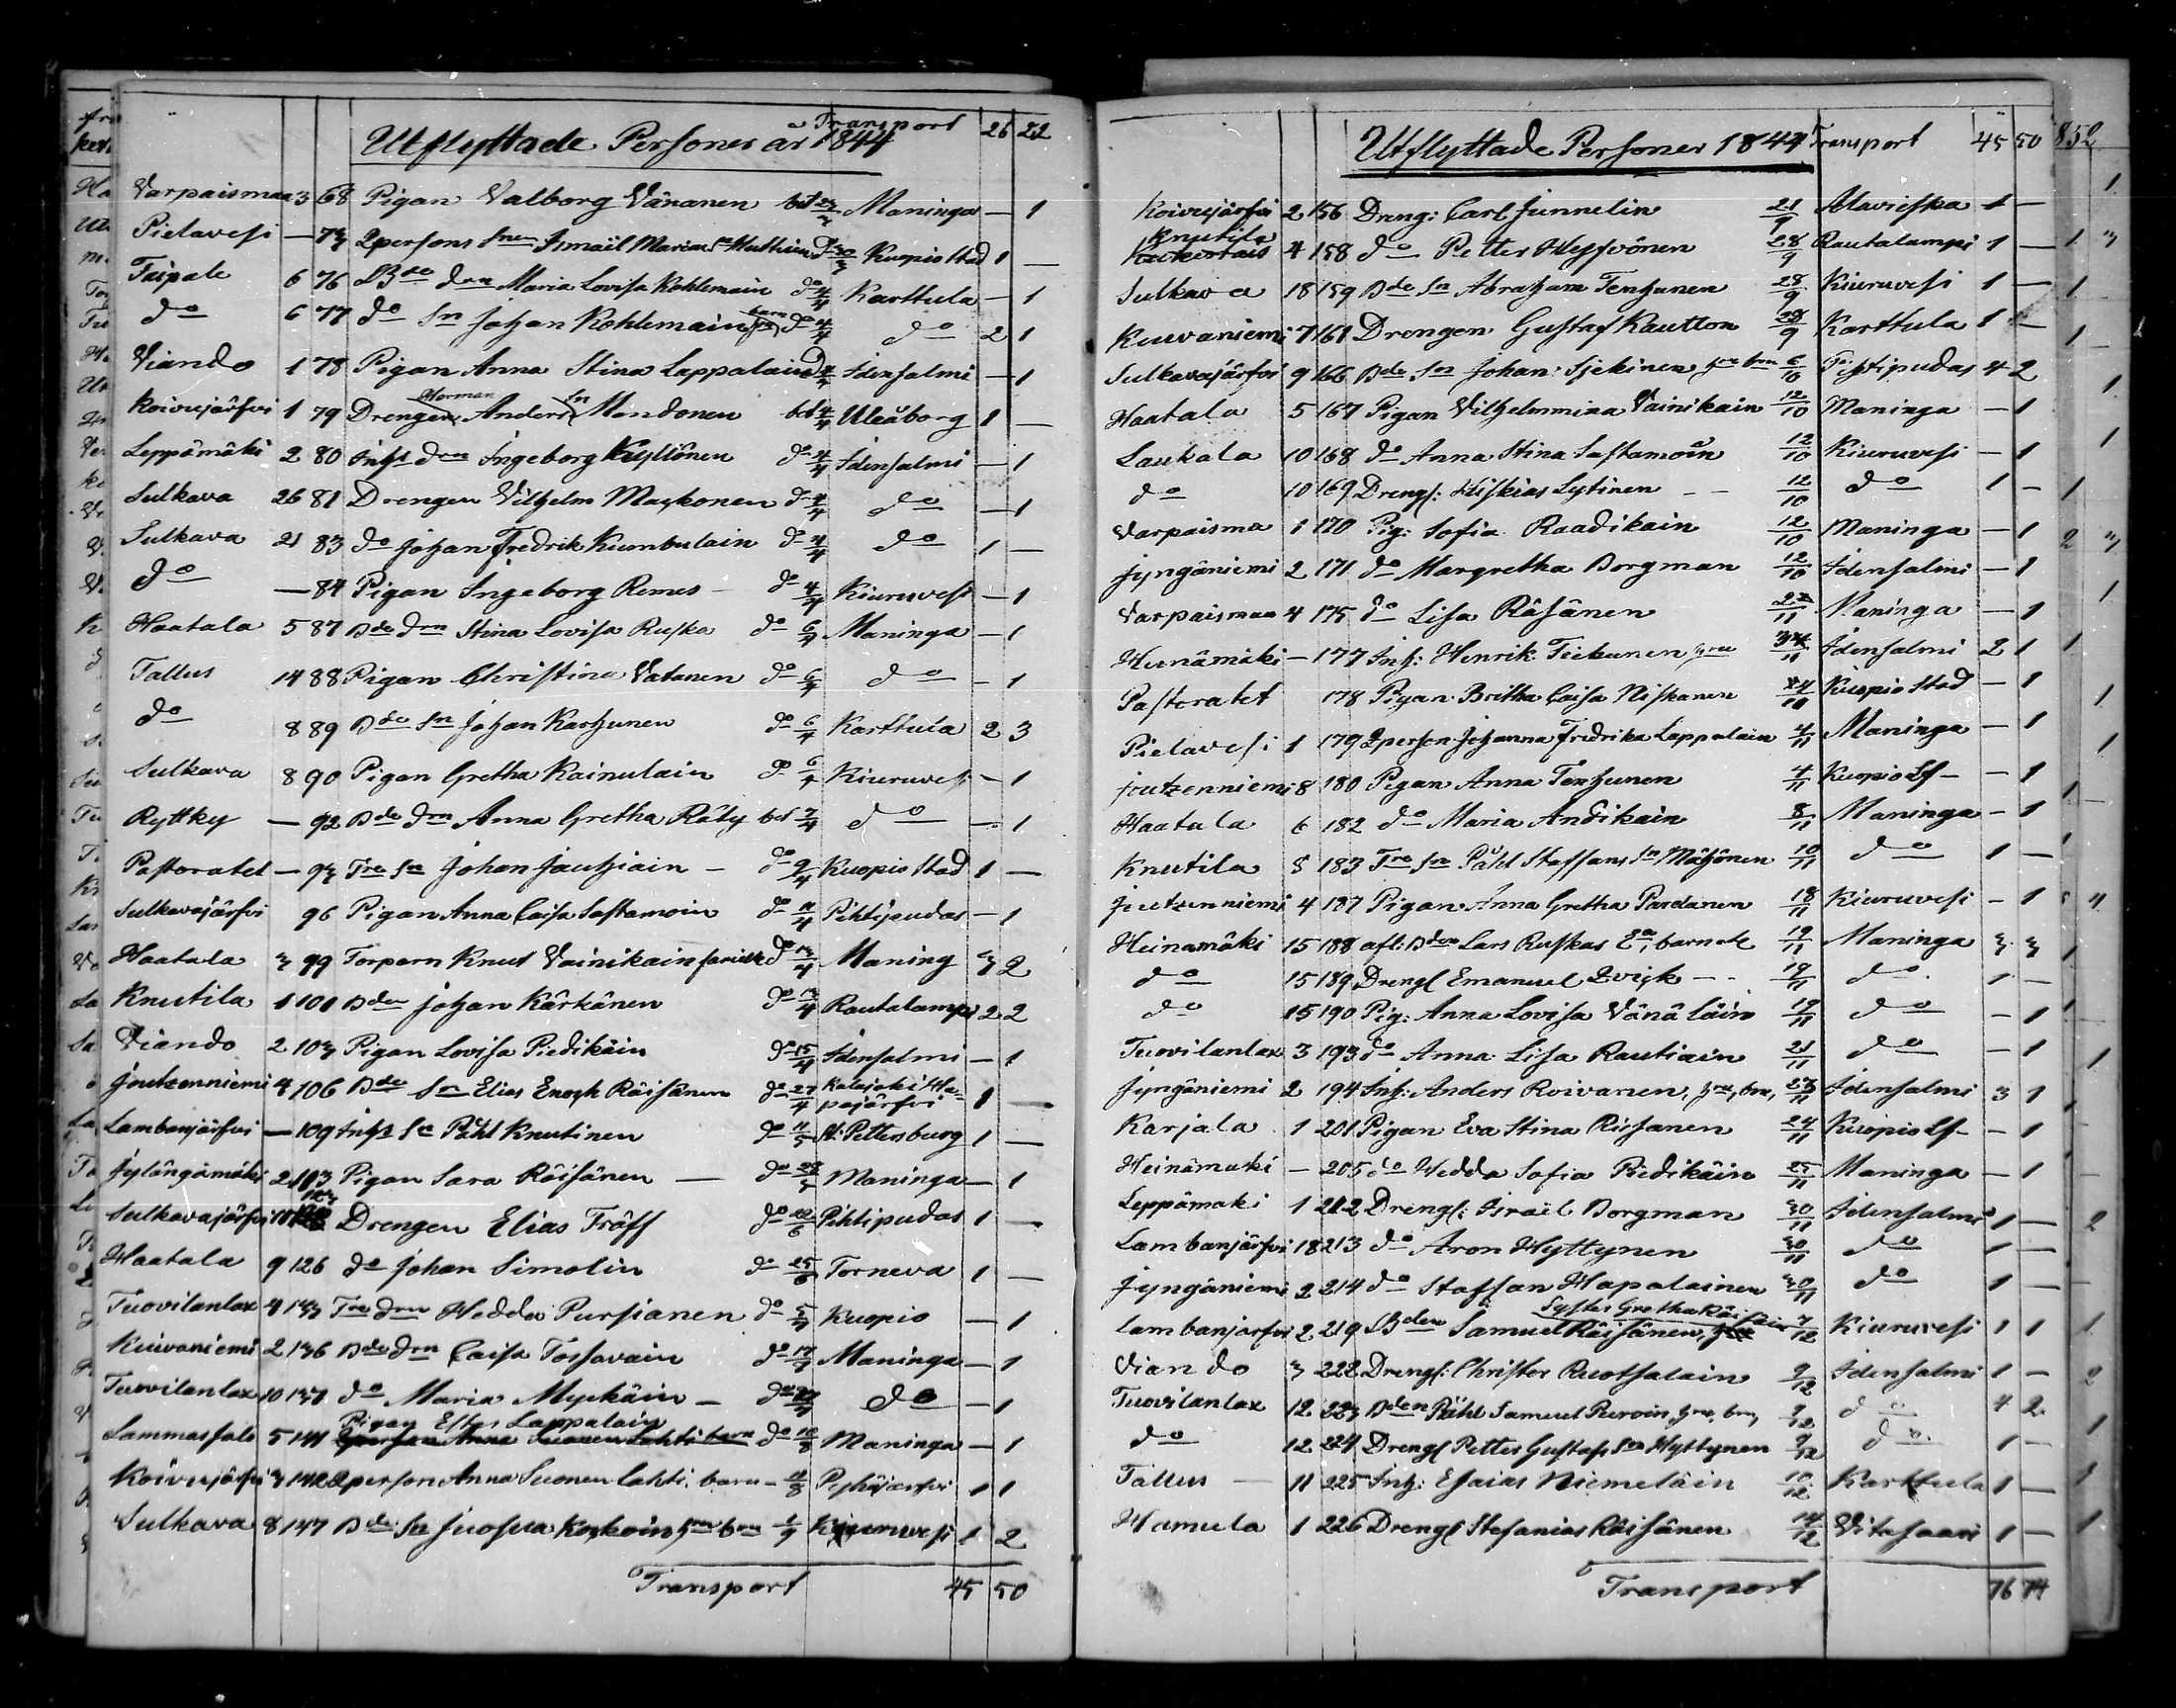 Utflyttade Personer år 1844 Transport 26 22
Varpaismaa 3 68 Pigan Valborg Vänänen bet 23/3 Maninga — 1
Pielavesi — 73 Qpersons Sne Ismaël Kuopio Stad 1 —
Taipale 6 76 Bde dren Maria Lovisa Kohlemain do 4/4 Karttula — 1
do 6 77 do Sn Johan Kohlemain do 4/4 do 2 1
Viando 1 78 Pigan Anna Stina Lappalain do 4/4 Idensalmi — 1
Koivujärfvi 1 79 Drengen Herman Anders Sn Mondonen bet 4/4 Uleåborg 1 —
Leppämäki 2 80 Inhs dren Ingeborg Kyllönen do 4/4 Idensalmi — 1
Sulkava 26 81 Drengen Vilhelm Maykonen do 4/4 do — 1
Sulkava 21 83 do Johan Fredrik Kumbulain do 4/4 do 1 —
do — 84 Pigan Ingeborg Remes — do 4/4 Kiuruvesi — 1
Haatala 5 87 Bde dren Stina Lovisa Ruska do 6/4 Maninga — 1
Tallus 14 88 Pigan Christina Vatanen do 6/4 do — 1
do 8 89 Bde Sn Johan Karhunen do 6/4 Karttula 2 3
Sulkava 8 90 Pigan Gretha Kainulain do 6/4 Kiuruvesi — 1
Ryttky — 92 Bde dren Anna Gretha Räty bet 7/4 do — 1
Pastoratet — 93 Tre Sn Johan Jauhiain — do 9/4 Kuopio Stad 1 —
Sulkavajärfvi 96 Pigan Anna Caisa Sastamoin do 11/4 Pihtipudas — 1
Haatala 3 99 Torparn Knut Vainikain do 13/4 Maning 3 2
Knutila 1 101 Bden Johan Kärkänen do 13/4 Rautalampi 2 2
Viando 2 103 Pigan Lovisa Piedikäin do 15/4 Idensalmi — 1
Joutzenniemi 4 106 Bde Sn Elias Enoch Räisänen do 27/4 Kalajoki Ha-
pajärfvi 1 —
Lambanjärfvi — 109 Inhs Sn Påhl Knutinen do 11/5 St: Pettersburg 1 —
Jylängämäki 2 113 Pigan Sara Räisänen — do 28/5 Maninga — 1
Sulkavajärfvi 18 123 Drengen Elias Träff do 22/6 Pihtipudas 1 —
Haatala 9 126 do Johan Simolin do 25/6 Torneva 1 —
Tuovilanlax 4 133 Tre dren Hedda Pursianen do 5/7 Kuopio — 1
Kuivaniemi 2 136 Bde dren Caisa Tossavain do 17/7 Maninga — 1
Tuovilanlax 10 137 do Maria Myckäin — do do — 1
Lammassalo 5 141 Pigan Ester Lappalain do 10/8 Maninga — 1
Koivujärfvi 3 142 Qperson Anna Suonen Lahti, barn — 11/8 Pyhäjärfvi 1 1
Sulkava 8 147 Bde Sn Juosua Koskoin hru brn 1/9 Kiuruvesi 1 2
Transport 45 50
Utflyttade Personer 1844 Transport 45 50
Koivujärfvi 2 156 Dreng: Carl Junnelin 21/9 Alavieska 1 —
Knutila 4 158 do Petter Heyfvönen 28/9 Rautalampi 1 —
Sulkava 18 159 Bde Sn Abraham Tenhunen 28/9 Kiuruvesi 1 —
Kuivaniemi 7 161 Drengen Gustaf Kautton 28/9 Karttula 1 —
Sulkavajärfvi 9 166 Bde Sn Johan Tjekinen hru brn 6/10 Pihtipudas 4 2
Haatala 5 167 Pigan Vilhelmmina Vainikain 12/10 Maninga — 1
Laukala 10 168 do Anna Stina Sastamoin 12/10 Kiuruvesi — 1
do 10 169 Drengs: Hiskias Lytinen — — 12/10 do 1 —
Varpaisma 1 170 Pig: Sofia Raadikain 12/10 Maninga — 1
Jyngäniemi 2 171 do Margretha Borgman 12/10 Idensalmi — 1
Varpaismaa 4 175 do Lisa Räsänen 2/11 Maninga — 1
Heinämäki — 177 Inh: Henrik Tiekunen hru Idensalmi 2 1
Pastoratet 178 Pigan Britha Caisa Niskanen 4/11 Kuopio Stad — 1
Pielavesi 1 179 Qperson Johanna Fredrika Lappalain 4/11 Maninga — 1
Joutzenniemi 8 180 Pigan Anna Tenhunen 4/11 Kuopio Lf — — 1
Haatala 6 182 do Maria Andikain 8/11 Maninga — 1
Knutila 5 183 Tre Sn Påhl Staffans Sn Mähönen 10/11 do 1 —
Joutzenniemi 4 187 Pigan Anna Gretha Pardanen 18/11 Kiuruvesi — 1
Heinamäki 15 188 afl: Bden Lars Ruskas Ea, barn 19/11 Maninga 3 3
do 15 189 Drengs Emanuel Qvick — — 19/11 do 1 —
do 15 190 Pig: Anna Lovisa Vänäläin 19/11 do — 1
Tuovilanlax 3 193 do Anna Lisa Rautiain 21/11 do — 1
Jyngäniemi 2 194 Inh: Anders Roivanen, hru, brn, 23/11 Idensalmi 3 1
Karjala 1 201 Pigan Eva Stina Rissanen 24/11 Kuopio Lf — — 1
Heinämäki — 205 do Hedda Sofia Piedikäin 25/11 Maninga — 1
Leppämäki 1 212 Drengs: Israel Borgman 30/11 Idensalmi 1 —
Lambanjärfvi 18 213 do Aron Hyttynen 30/11 do 1 —
Jyngäniemi 2 214 do Staffan Hapalainen 30/11 do 1 —
Lambanjärfvi 2 219 Bden Samuel Räisänen, Syster Gretha Räisäin 7/12 Kiuruvesi 1 1
Viando 3 222 Drengs: Christer Ruotsalain 9/12 Idensalmi 1 —
Tuovilanlax 12 223 Bden Påhl Samuel Puroin, hru, brn, 9/12 do 4 2
do 12 224 Drengs Petter Gustafs Son Hyttynen 9/12 do 1 —
Tallus — 11 225 Inh: Esaias Niemeläin 10/12 Karttula 1 —
Hamula 1 226 Drengs Stefanias Räisänen 14/12 Vitasaari 1 —
Transport 76 74